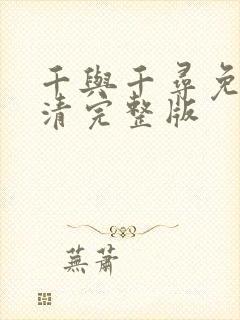 千與千尋免
清完整版
蕪蕭